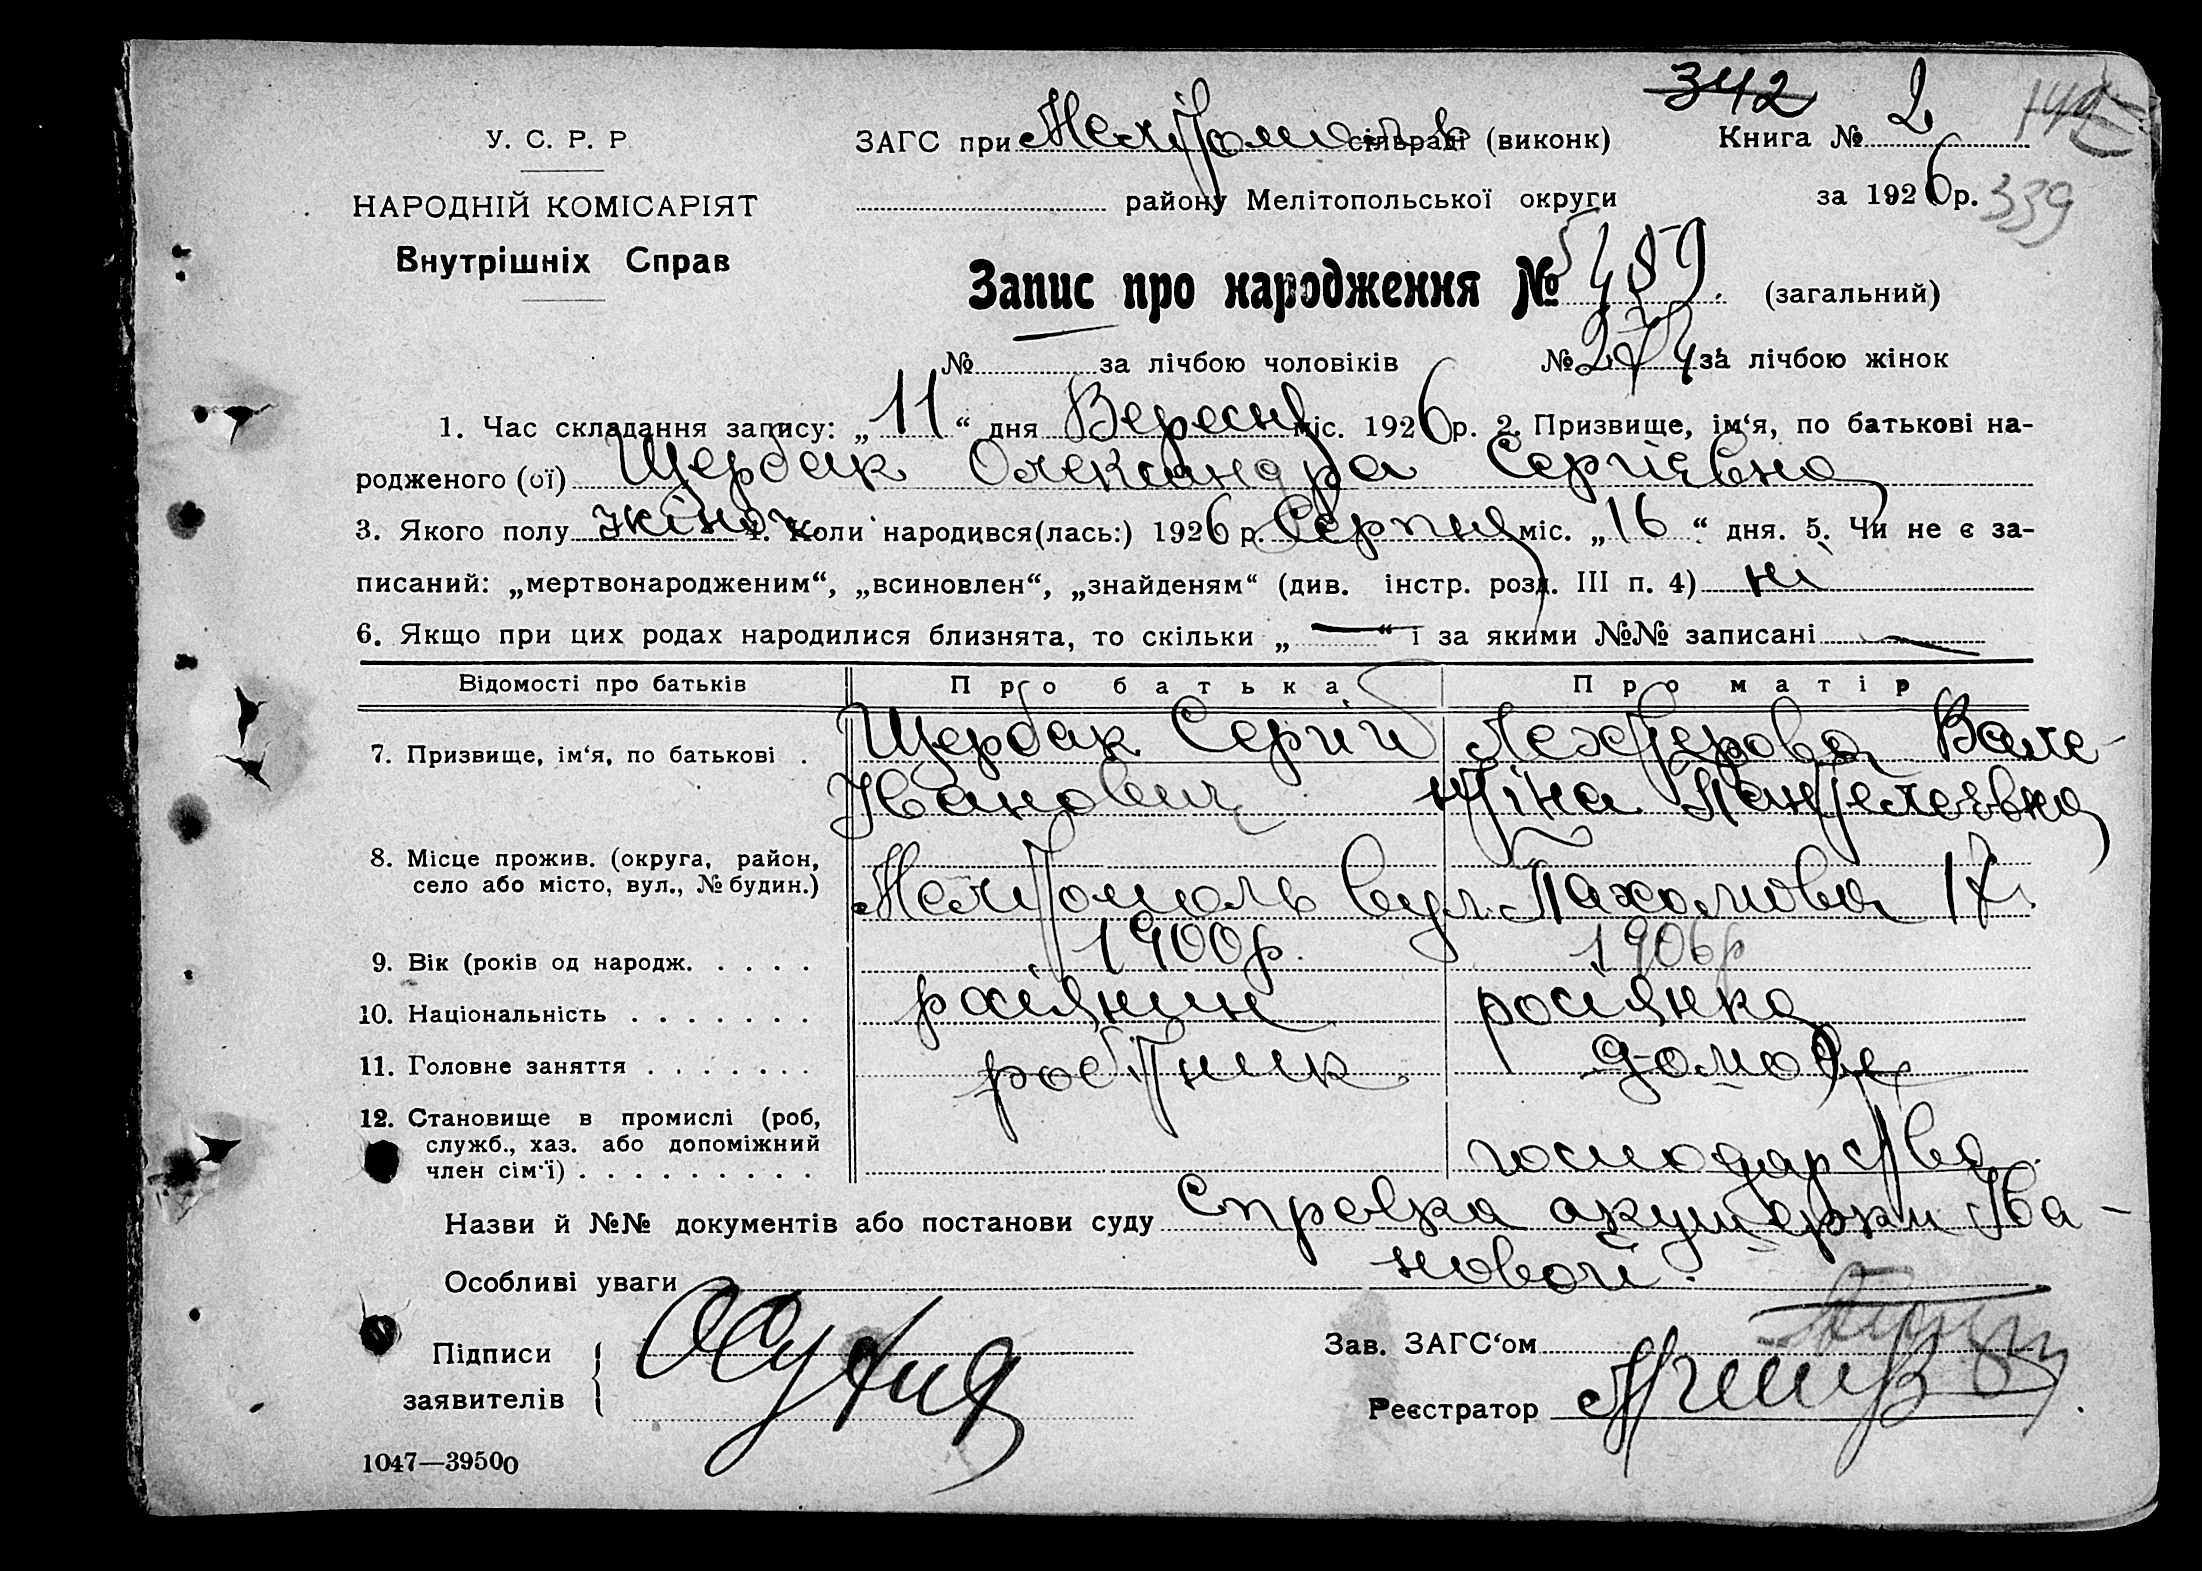 342 2
У. С. Р. Р
ЗАГС при сільраді (виконк) Книга №
НАРОДНІЙ КОМІСАРІЯТ
району Мелітопольської округи за 1926 р. 339
Внутрішніх Справ
Запис про народження № (загальний)
№ за лічбою чоловіків № 274 за лічбою жінок
1. Час складання запису: „11“ дня Вересня міс. 1926 р. 2. Призвище, ім‘я, по батькові на-
родженого (ої) Щербак Олександра Сергієвна
3. Якого полу жіноч 4. Коли народився(лась:) 1926 р. Серпня міс. „16“ дня. 5. Чи не є за-
писаний: „мертвонародженим“, „всиновлен“, „знайденям“ (див. інстр. розд. III п. 4) ні
6. Якщо при цих родах народилися близнята, то скільки „—“ і за якими №№ записані —
Відомості про батьків Про батька Про матір
7. Призвище, ім‘я, по батькові . Щербак Сергій Вале-
Іванович нтіна Пантелеєвна
8. Місце прожив. (округа, район,
село або місто, вул., № будин.) Мелітополь вул. Пахомова 17
9. Вік (років од народж. . . . . 1900р. 1906р
10. Національність . . . . . . . росіянин росіянка
11. Головне заняття . . . . . . . робітник домове
12. Становище в промислі (роб,
служб., хаз. або допоміжний
член сім‘ї) . . . . . . . . . господарство
Назви й №№ документів або постанови суду Справка акушерки Іва-
Особливі уваги новой.
Підписи
заявителів
Зав. ЗАГС‘ом
Реєстратор
1047—39500